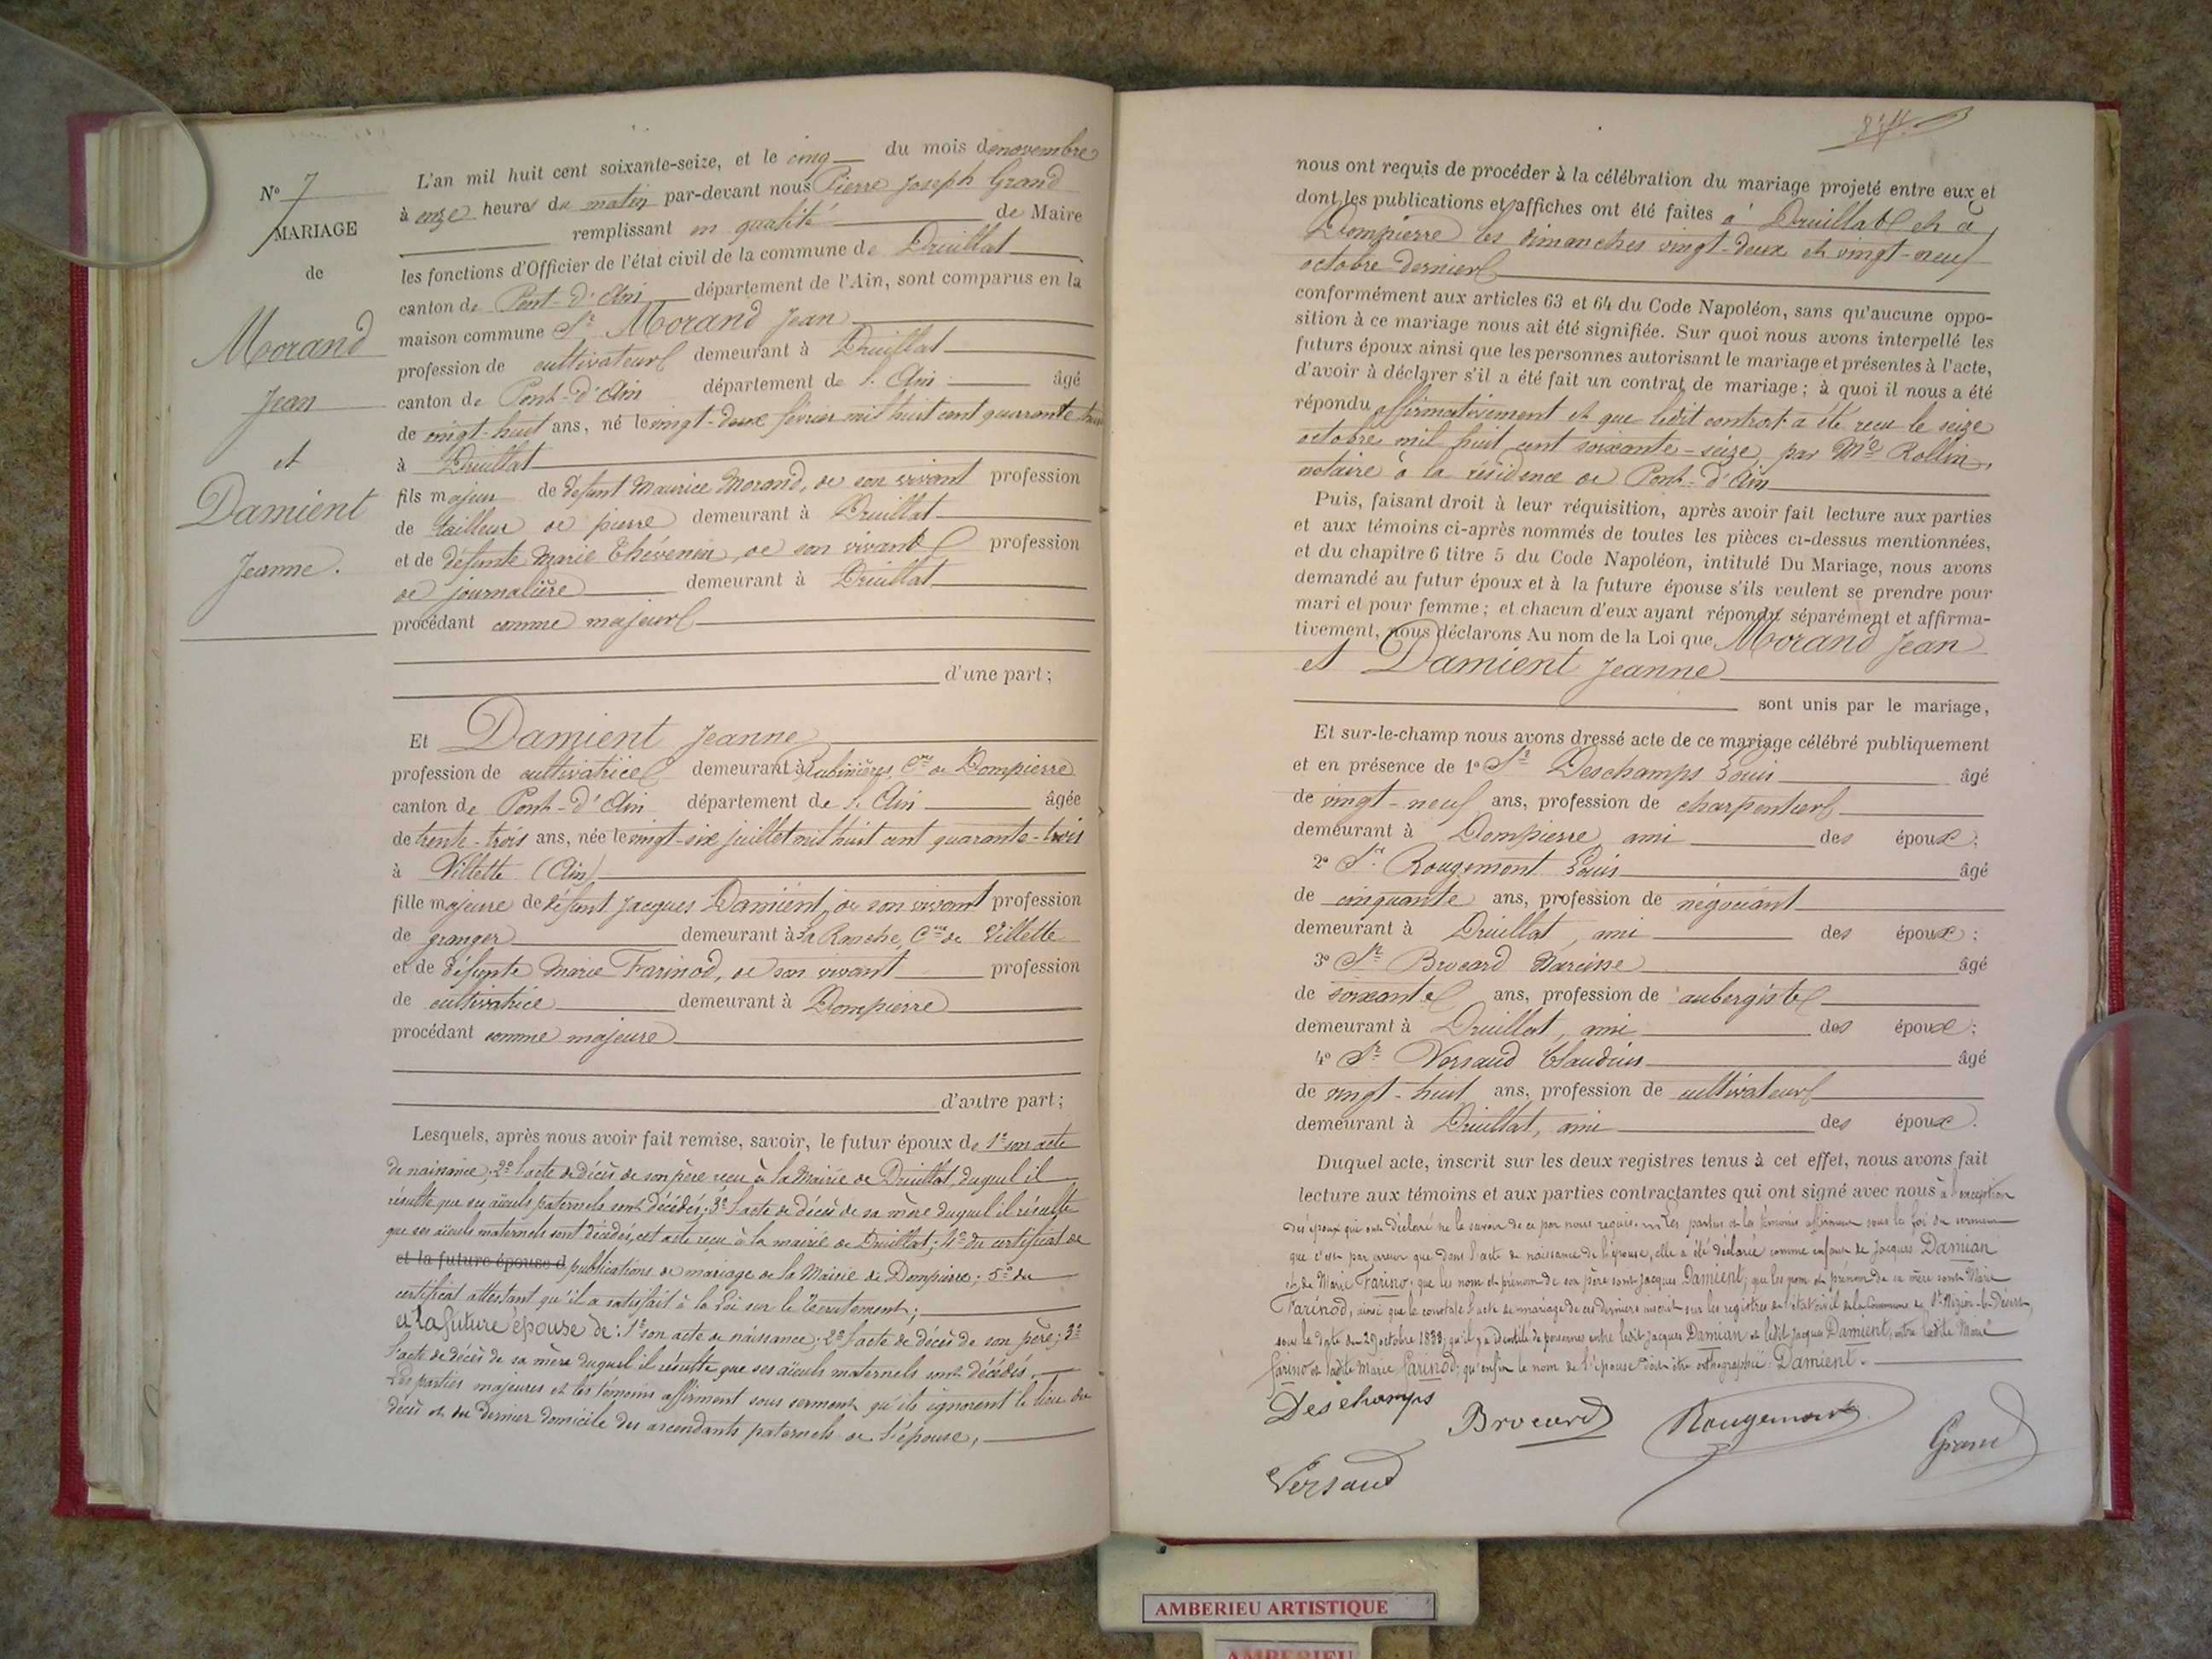 N° 7
MARIAGE
de
Morand
Jean
et
Damient
Jeanne.
L'an mil huit cent soixante-seize, et le cinq du mois de novembre
à onze heures du matin par-devant nous Pierre Joseph Grand
remplissant en qualité de Maire
les fonctions d'Officier de l'état civil de la commune de Druillat
canton de Pont-d'Ain département de l'Ain, sont comparus en la
maison commune Sr Morand Jean
profession de cultivateur demeurant à Druillat
canton de Pont-d'Ain département de l'Ain âgé
de vingt-huit ans, né le vingt-deux février mil huit cent quarante-huit
à Druillat
fils majeur de défunt Maurice Morand, de son vivant profession
de tailleur de pierre demeurant à Druillat
et de défunte Marie Thévenin, de son vivant profession
de journalière demeurant à Druillat
procédant comme majeur
d'une part;
Et Damient Jeanne
profession de cultivatrice demeurant à Rubinières, Cne de Dompierre
canton de Pont-d'Ain département de l'Ain âgée
de trente-trois ans, née le vingt-six juillet mil huit cent quarante-trois
à Villette (Ain)
fille majeure de défunt Jacques Damient, de son vivant profession
de granger demeurant à La Ranche, Cne de Villette
et de défunte Marie Farinod, de son vivant profession
de cultivatrice demeurant à Dompierre
procédant comme majeure
d'autre part;
Lesquels, après nous avoir fait remise, savoir, le futur époux de 1° son acte
de naissance; 2° l'acte de décès de son père reçu à la Mairie de Druillat, duquel il
résulte que ses aïeuls paternels sont décédés; 3° l'acte de décès de sa mère duquel il résulte
que ses aïeuls maternels sont décédés, cet acte reçu à la mairie de Druillat; 4° du certificat de
et la future épouse d publications de mariage de la Mairie de Dompierre; 5° du
certificat attestant qu'il a satisfait à la Loi sur le Recrutement;
et la future épouse de: 1° son acte de naissance; 2° l'acte de décès de son père; 3°
l'acte de décès de sa mère duquel il résulte que ses aïeuls maternels sont décédés.
Les parties majeures et les témoins affirment sous serment qu'ils ignorent le lieu du
décès et du dernier domicile des ascendants paternels de l'épouse,
nous ont requis de procéder à la célébration du mariage projeté entre eux et
dont les publications et affiches ont été faites à Druillat et à
Dompierre les dimanches vingt-deux et vingt-neuf
octobre dernier
conformément aux articles 63 et 64 du Code Napoléon, sans qu'aucune oppo-
sition à ce mariage nous ait été signifiée. Sur quoi nous avons interpellé les
futurs époux ainsi que les personnes autorisant le mariage et présentes à l'acte,
d'avoir à déclarer s'il a été fait un contrat de mariage; à quoi il nous a été
répondu affirmativement et que ledit contrat a été reçu le seize
octobre mil huit cent soixante-seize par Me Rollin,
notaire à la résidence de Pont-d'Ain
Puis, faisant droit à leur réquisition, après avoir fait lecture aux parties
et aux témoins ci-après nommés de toutes les pièces ci-dessus mentionnées,
et du chapitre 6 titre 5 du Code Napoléon, intitulé Du Mariage, nous avons
demandé au futur époux et à la future épouse s'ils veulent se prendre pour
mari et pour femme; et chacun d'eux ayant répondu séparément et affirma-
tivement, nous déclarons Au nom de la Loi que Morand Jean
et Damient Jeanne
sont unis par le mariage,
Et sur-le-champ nous avons dressé acte de ce mariage célébré publiquement
et en présence de 1° Sr Deschamps Louis âgé
de vingt-neuf ans, profession de charpentier
demeurant à Dompierre, ami des époux;
2° Sr Rougemont Louis âgé
de cinquante ans, profession de négociant
demeurant à Druillat, ami des époux;
3° Sr Brocard Narcisse âgé
de soixante ans, profession de aubergiste
demeurant à Druillat, ami des époux;
4° Sr Versaud Claudius âgé
de vingt-huit ans, profession de cultivateur
demeurant à Druillat, ami des époux.
Duquel acte, inscrit sur les deux registres tenus à cet effet, nous avons fait
lecture aux témoins et aux parties contractantes qui ont signé avec nous à l'exception
des époux qui ont déclaré ne le savoir de ce par nous requis. Les parties et les témoins affirment sous la foi du serment
que c'est par erreur que dans l'acte de naissance de l'épouse, elle a été déclarée comme enfant de Jacques Damian
et de Marie Farino; que les nom et prénom de son père sont Jacques Damient; que les nom et prénom de sa mère sont Marie
Farinod, ainsi que le constate l'acte de mariage de ces derniers inscrit sur les registres de l'état civil de la Commune de St Nizier-le-Désert,
sous la date du 29 octobre 1838; qu'il y a identité de personnes entre ledit Jacques Damian et ledit Jacques Damient, entre ladite Marie
Farino et ladite Marie Farinod; qu'enfin le nom de l'épouse doit être orthographié: Damient.
Deschamps Brocard Rougemont Grand
Versaud
AMBERIEU ARTISTIQUE
AMBERIEU